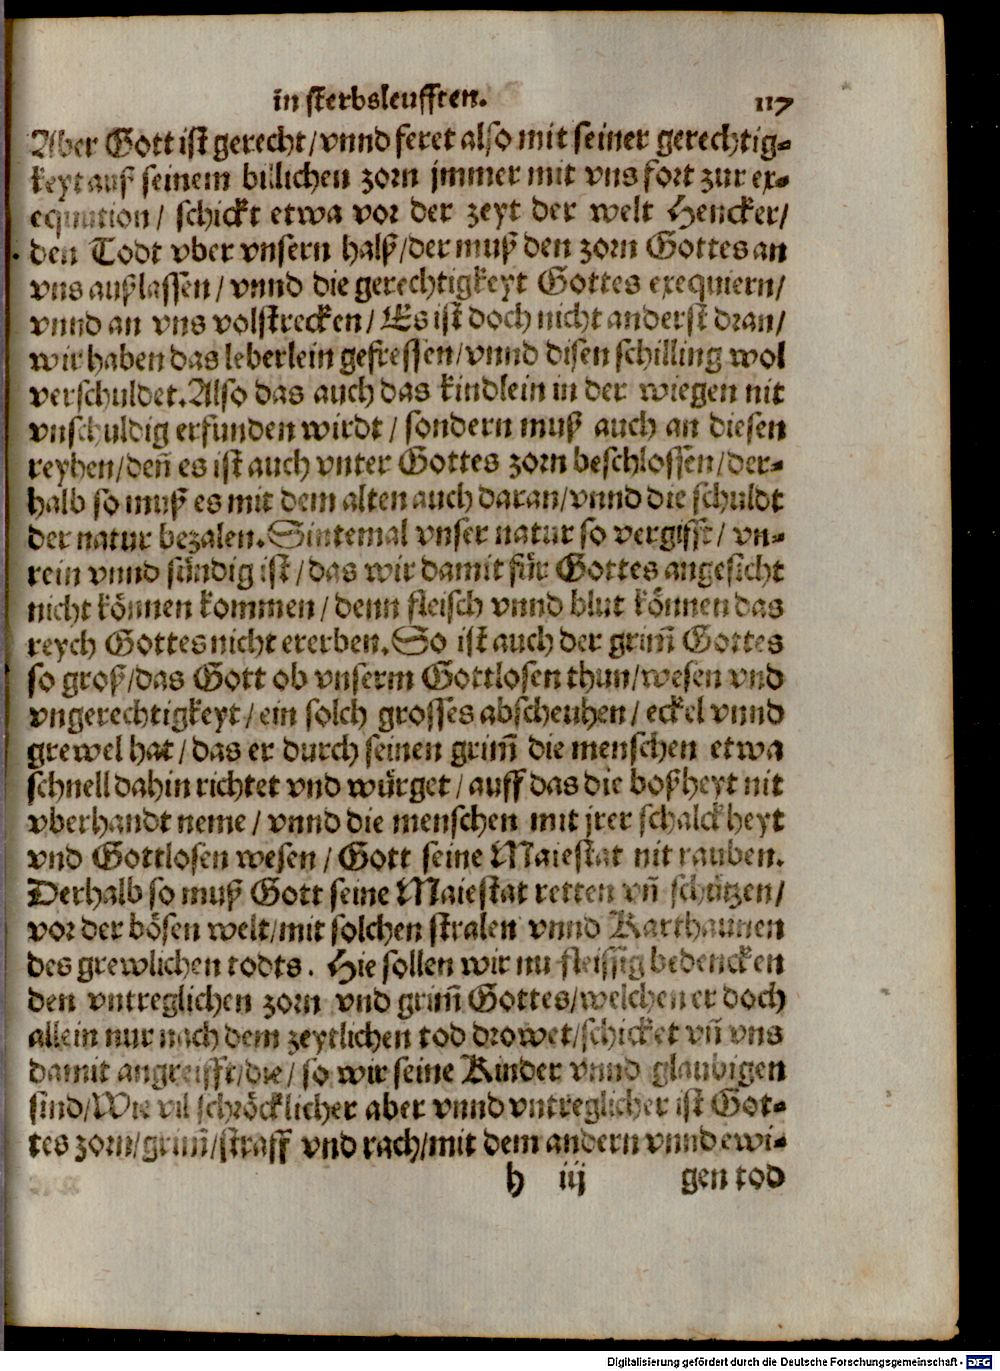 in sterbsleufften. 117
Aber Gott ist gerecht/vnnd feret also mit seiner gerechtig-
keyt auß seinem billichen zorn jmmer mit vns fort zur ex-
equution/ schickt etwa vor der zeyt der welt Hencker/
den Todt vber vnsern halß/der muß den zorn Gottes an
vns außlassen/ vnnd die gerechtigkeyt Gottes exequiern/
vnnd an vns volstrecken/ Es ist doch nicht anderst dran/
wir haben das leberlein gefressen/vnnd disen schilling wol
verschuldet. Also das auch das kindlein in der wiegen nit
vnschuldig erfunden wirdt/ sondern muß auch an diesen
reyhen/deñ es ist auch vnter Gottes zorn beschlossen/der-
halb so muß es mit dem alten auch daran/vnnd die schuldt
der natur bezalen. Sintemal vnser natur so vergifft/ vn-
rein vnnd sündig ist/das wir damit für Gottes angesicht
nicht können kommen/ denn fleisch vnnd blut können das
reych Gottes nicht ererben. So ist auch der grim̃ Gottes
so groß/das Gott ob vnserm Gottlosen thun/wesen vnd
vngerechtigkeyt/ein solch grosses abscheuhen/ eckel vnnd
grewel hat/das er durch seinen grim̃ die menschen etwa
schnell dahin richtet vnd würget/ auff das die boßheyt nit
vberhandt neme/ vnnd die menschen mit jrer schalckheyt
vnd Gottlosen wesen/ Gott seine Maiestat nit rauben.
Derhalb so muß Gott seine Maiestat retten vñ schützen/
vor der bösen welt/mit solchen stralen vnnd Karthaunen
des grewlichen todts. Hie sollen wir nu fleissig bedencken
den vntreglichen zorn vnd grim̃ Gottes/welchen er doch
allein nur nach dem zeytlichen tod drowet/schicket vñ vns
damit angreifft/die/ so wir seine Kinder vnnd glaubigen
sind/Wie vil schröcklicher aber vnnd vntreglicher ist Got-
tes zorn/grim̃/straff vnd rach/mit dem andern vnnd ewi-
h iij gen tod
Digitalisierung gefördert durch die Deutsche Forschungsgemeinschaft - DFG